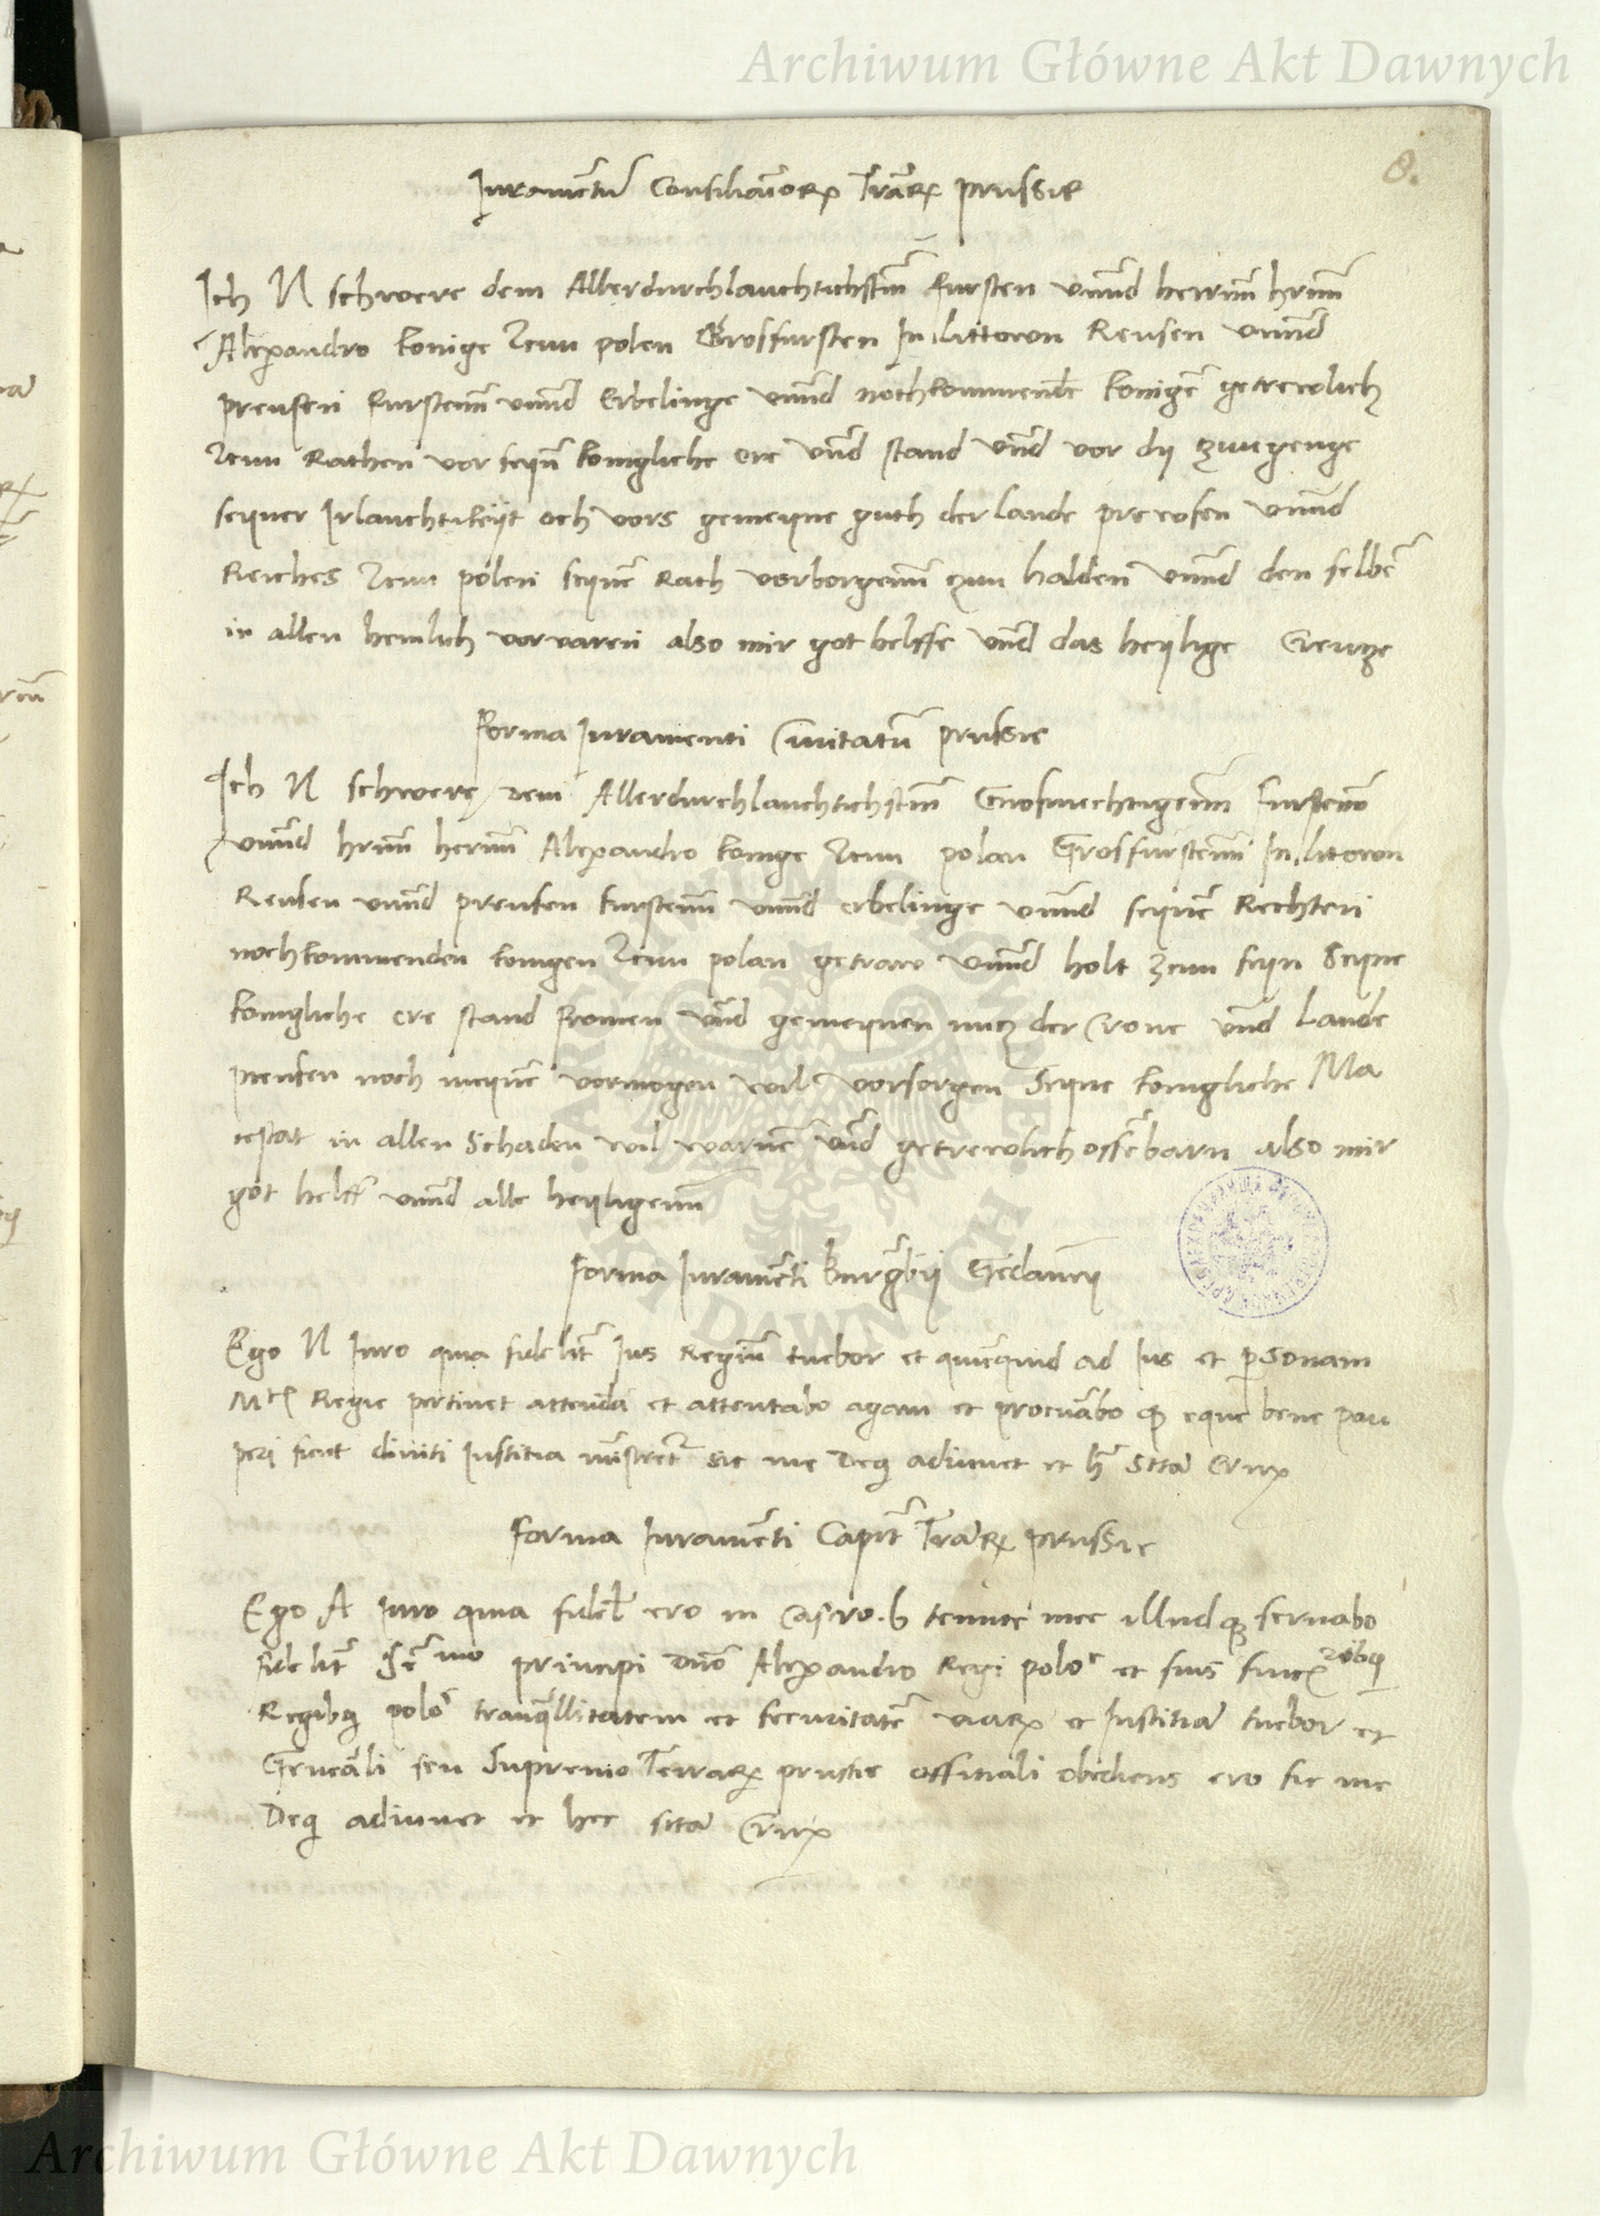 Archiwum Główne Akt Dawnych
8.
Iuramentũ Consiliarioꝝ Trãꝝ prussie
Ich N schwere dem Allerdurchlauchtichstẽn fursten vnnd herrnn hrnn
Alexandro konige zcuu polen Grosfursten In littowon Reusen vnnd
preusen furstenn vnnd Erbelinge vnnd nochkommendẽ konigẽ getrewlich
zcuu Rathen vor seynẽ konigliche ere vnd stand vnd vor dy zuugenge
seyner Irlauchtikeyt och vors gemeyne guth der lande prewsen vnnd
Reiches zcuu polen seynẽ Rath vorborgenn zuu halden vnnd den selbẽ
in allen hemlich vorwaren also mir got helffe vnd das heylige Creutze
Forma Iuramenti Ciuitatũ prussie
Ich N schwere dem Allerdurchlauchtichstẽn Grosmechtigenn Furstenn
vnnd hrnn hernn Alexandro konige zcuu polan Grosfurstenn In litowon
Reusen vnnd preusen furstenn vnnd erbelinge vnnd seynẽ Rechten
nochkommenden konigen zcuu polan getraw vnnd holt zcuu seyn Seyne
konigliche ere stand fromen vnd gemeynen nutz der Crone vnd Lande
preusen noch meynẽ vormogen wil vorsorgen Seyne konigliche Ma
iestat in allen Schaden wil warnẽ vnd getrewlich offẽbarn also mir
got helff vnnd alle heyligenn
Forma Iuramẽti Burgrabÿ Gedanẽn
Ego N Iuro quia fidelitẽ Ius Regiũ tuebor et quicquid ad Ius et p̱sonam
Mtꝭ Regie pertinet attendã et attentabo agam et procurabo qꝫ eque bene pau
peri sicut diuiti Iustitia mĩstretʳ sic me Deꝰ adiuuet et hʳ Sctã Crux
Forma Iuramẽti Capitʳ Trãꝝ prussie
Ego A Iuro quia fidelʳ ero in Castro .b tenutẽ mee illudqꝫ seruabo
fidelitʳ Serᵐᵒ principi dnõ Alexandro Regi poloᵉ et suis succꝭ ribꝰ
Regibꝰ poloᵉ tranqͣllitatem et securitatẽ viaꝝ et Iustitiã tuebor et
Generali seu Supremo Terraꝝ prussie offitiali obediens ero sic me
Deꝰ adiuuet et hec sctã Crux
Archiwum Główne Akt Dawnych